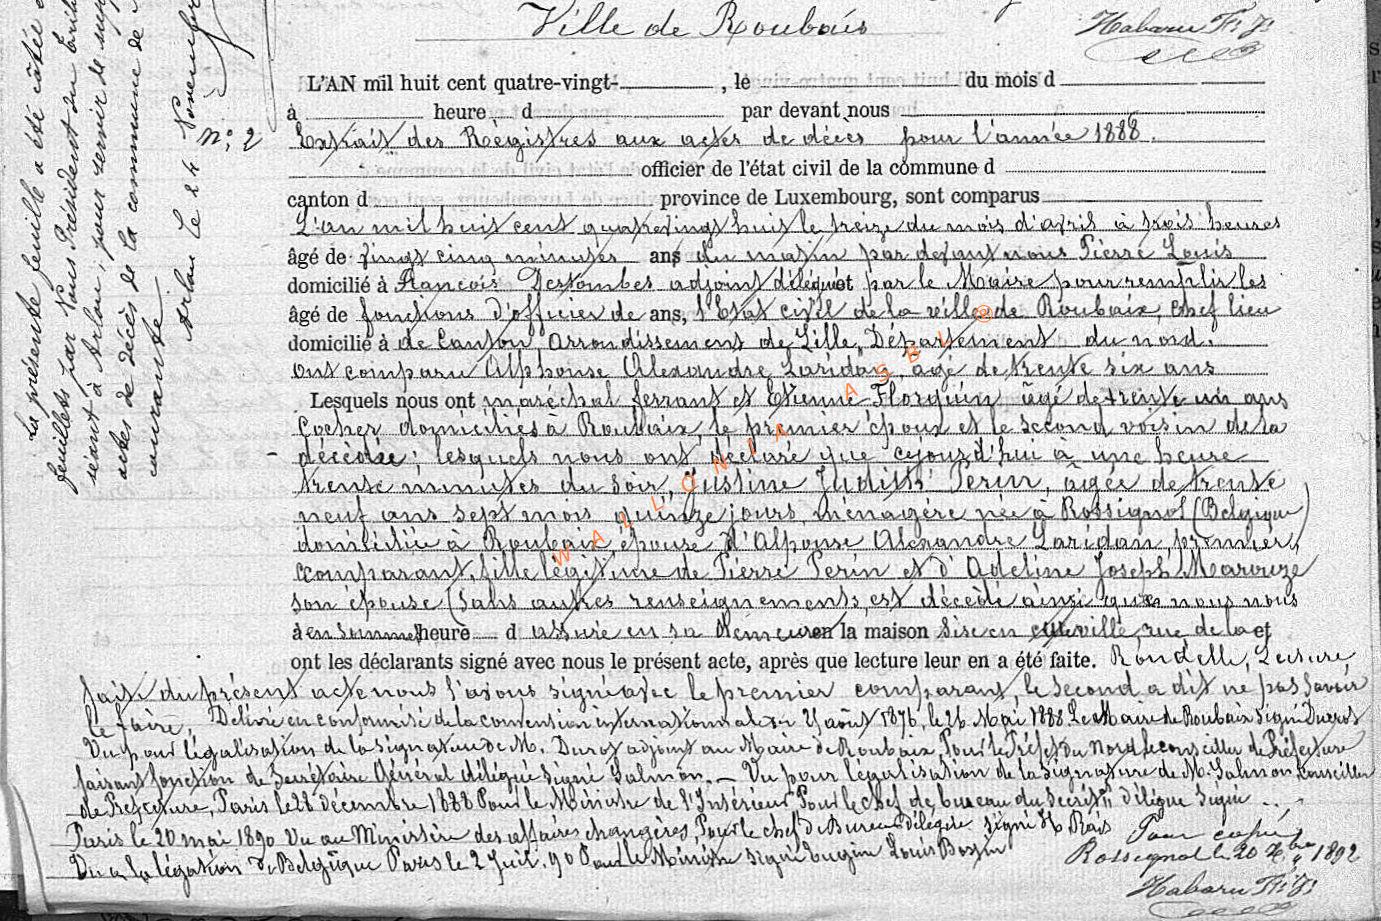 Ville de Roubaix
Habaru Fr. Js
L'AN mil huit cent quatre-vingt- , le du mois d
à heure d par devant nous
N°: 2
Extrait des Régistres aux actes de décès pour l'année 1888.
officier de l'état civil de la commune d
canton d province de Luxembourg, sont comparus
L'an mil huit cent quatrevingt huit le treize du mois d'avril à trois heures
âgé de vingt cinq minutes ans du matin par devant nous Pierre Louis
domicilié à François Destombes adjoint délégué par le Maire pour remplir les
âgé de fonctions d'officier de ans, l'Etat civil de la ville de Roubaix, chef lieu
domicilié à de Canton arrondissement de Lille, Département du nord.
ont comparu Alphonse Alexandre Laridan, âgé de trente six ans
Lesquels nous ont maréchal ferrant et Etienne Florquin âgé de trente un ans
Cocher domiciliés à Roubaix, le premier époux et le second voisin de la
décédée; lesquels nous ont déclaré que cejourd'hui à une heure
trente minutes du soir, Justine Judith Perin, âgée de trente
neuf ans sept mois quinze jours ménagère née à Rossignol (Belgique)
domiciliée à Roubaix, épouse d'Alponse Alexandre Laridan, premier
comparant, fille légitime de Pierre Perin et d'Adeline Joseph Marouze
son épouse (sans autres renseignements, est décédé ainsi que nous nous
à en sommes heure d assuré en sa demeure en la maison sise en cette ville, rue de la et
ont les déclarants signé avec nous le présent acte, après que lecture leur en a été faite. Rondelle, Lecture
fait du présent acte nous l'avons signé avec le premier comparant, le second a dit ne pas savoir
le faire. Délivré en conformité de la convention internationale du 25 août 1876, le 26 Mai 1888 Le Maire de Roubaix signé Durot
Vu pour légalisation de la signature de M. Durot adjoint au Maire de Roubaix, Pour le Préfet du Nord le conseiller de Préfecture
faisant fonction de Secrétaire Général délégué signé Salmon. — Vu pour légalisation de la signature de M. Salmon Conseiller
de Préfecture, Paris le 28 décembre 1888 Pour le Ministre de l'Intérieur Pour le chef de bureau du Secrét délégué signé
Paris le 20 mai 1890 Vu au Ministère des affaires étrangères, Pour le chef de Bureau délégué signé
Vu à la légation de Belgique Paris le 2 Juil. 90 Pour le Ministre signé
Pour copie
Rossignol le 20 Xbre 1892
Habaru Fr. Js
La présente feuille a été côtée
feuillets par Nous Président du
séant à Arlon, pour servir de
actes de décès de la commune de
courante
Arlon le 24 Novembre
WALLONIA ASBL ©